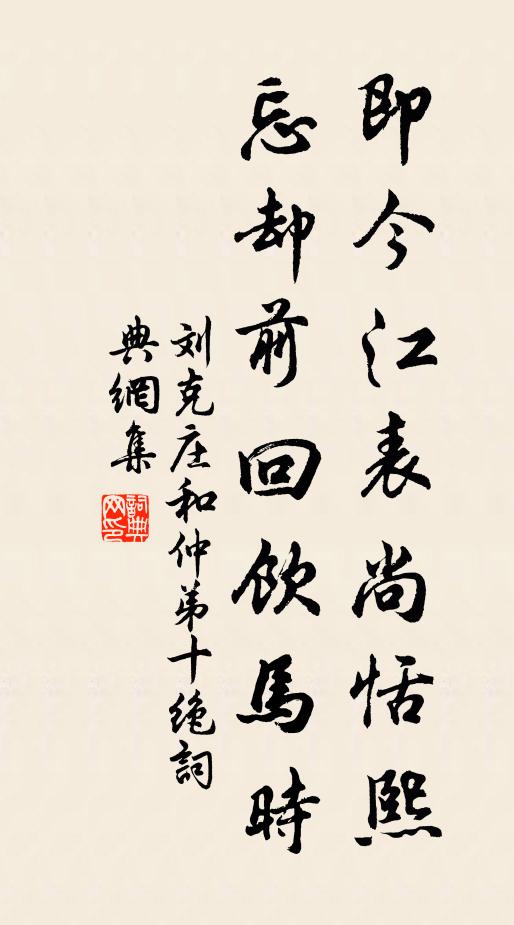 即今江表尚恬熙
忘却前回飲馬時
刘克庄和仲弟十绝詞
典網集
詞典
网印